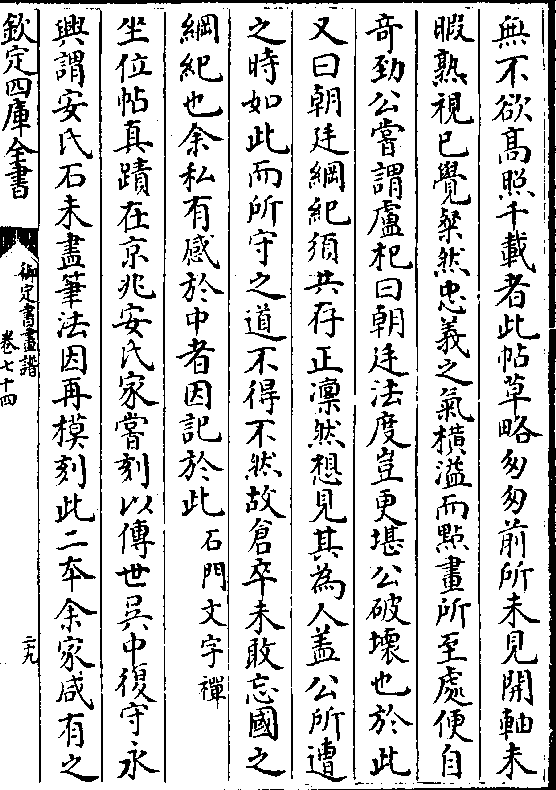 無不欲髙照千載者此帖草略匆匆前所未見開軸未
暇熟視已覺粲然忠義之氣横溢而點畫所至處便自
竒勁公嘗謂盧杞曰朝廷法度豈更堪公破壞也於此
又曰朝廷綱紀須共存正凛然想見其為人盖公所遭
之時如此而所守之道不得不然故倉卒未敢忘國之
綱紀也余私有感於中者因記於此石門文字禪
坐位帖真蹟在京兆安氏家嘗刻以傳世吳中復守永
興謂安氏石未盡筆法因再模刻此二本余家咸有之
欽定四庫全書
御定書畫譜
卷七十四
二九